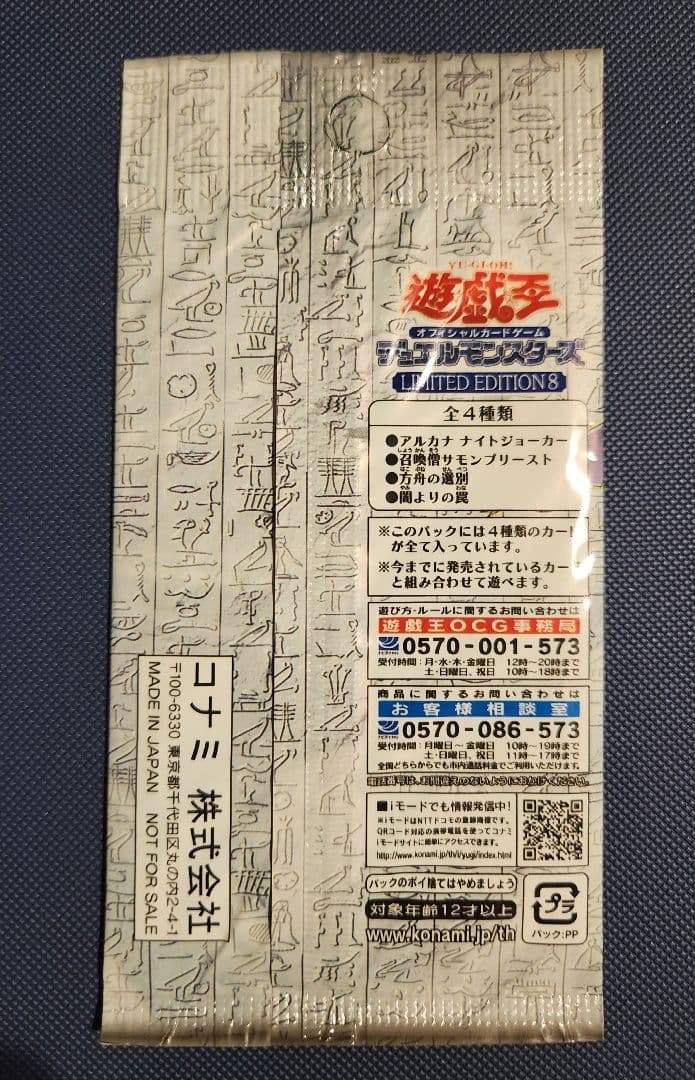 YU-GI-OH!
遊戯王
オフィシャルカードゲーム
デュエルモンスターズ
LIMITED EDITION 8
全4種類
●アルカナ ナイトジョーカー
しょうかんそう
●召喚僧サモンプリースト
はこぶね せんべつ
●方舟の選別
やみ わな
●闇よりの罠
※このパックには4種類のカード
が全て入っています。
※今までに発売されているカード
と組み合わせて遊べます。
遊び方・ルールに関するお問い合わせは
遊戯王OCG事務局
0570-001-573
受付時間:月・水・木・金曜日 12時〜20時まで
土・日曜日、祝日 10時〜18時まで
商品に関するお問い合わせは
お客様相談室
0570-086-573
受付時間:月曜日〜金曜日 10時〜19時まで
土・日曜日、祝日 11時〜17時まで
全国どちらからでも市内通話料金でご利用いただけます。
電話番号は、お間違えのないようにおかけください。
■iモードでも情報発信中!
※iモードはNTTドコモの登録商標です。
QRコード対応の携帯電話を使ってコナミ
iモードサイトに簡単にアクセスできます。
http://www.konami.jp/th/i/yugi/index.html
パックのポイ捨てはやめましょう
対象年齢12才以上
www.konami.jp/th
プラ
パック:PP
コナミ 株式会社
〒100-6330 東京都千代田区丸の内2-4-1
MADE IN JAPAN NOT FOR SALE